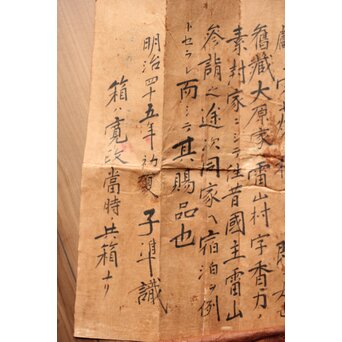 舊藏大原家ハ雷山村字香力ノ
素封家ニシテ往昔國主雷山
參詣之途次同家ヘ宿泊ヲ例
トセラレ而シテ其賜品也
明治四十五年初夏 子準識
箱ハ寛政當時ノ共箱ナリ